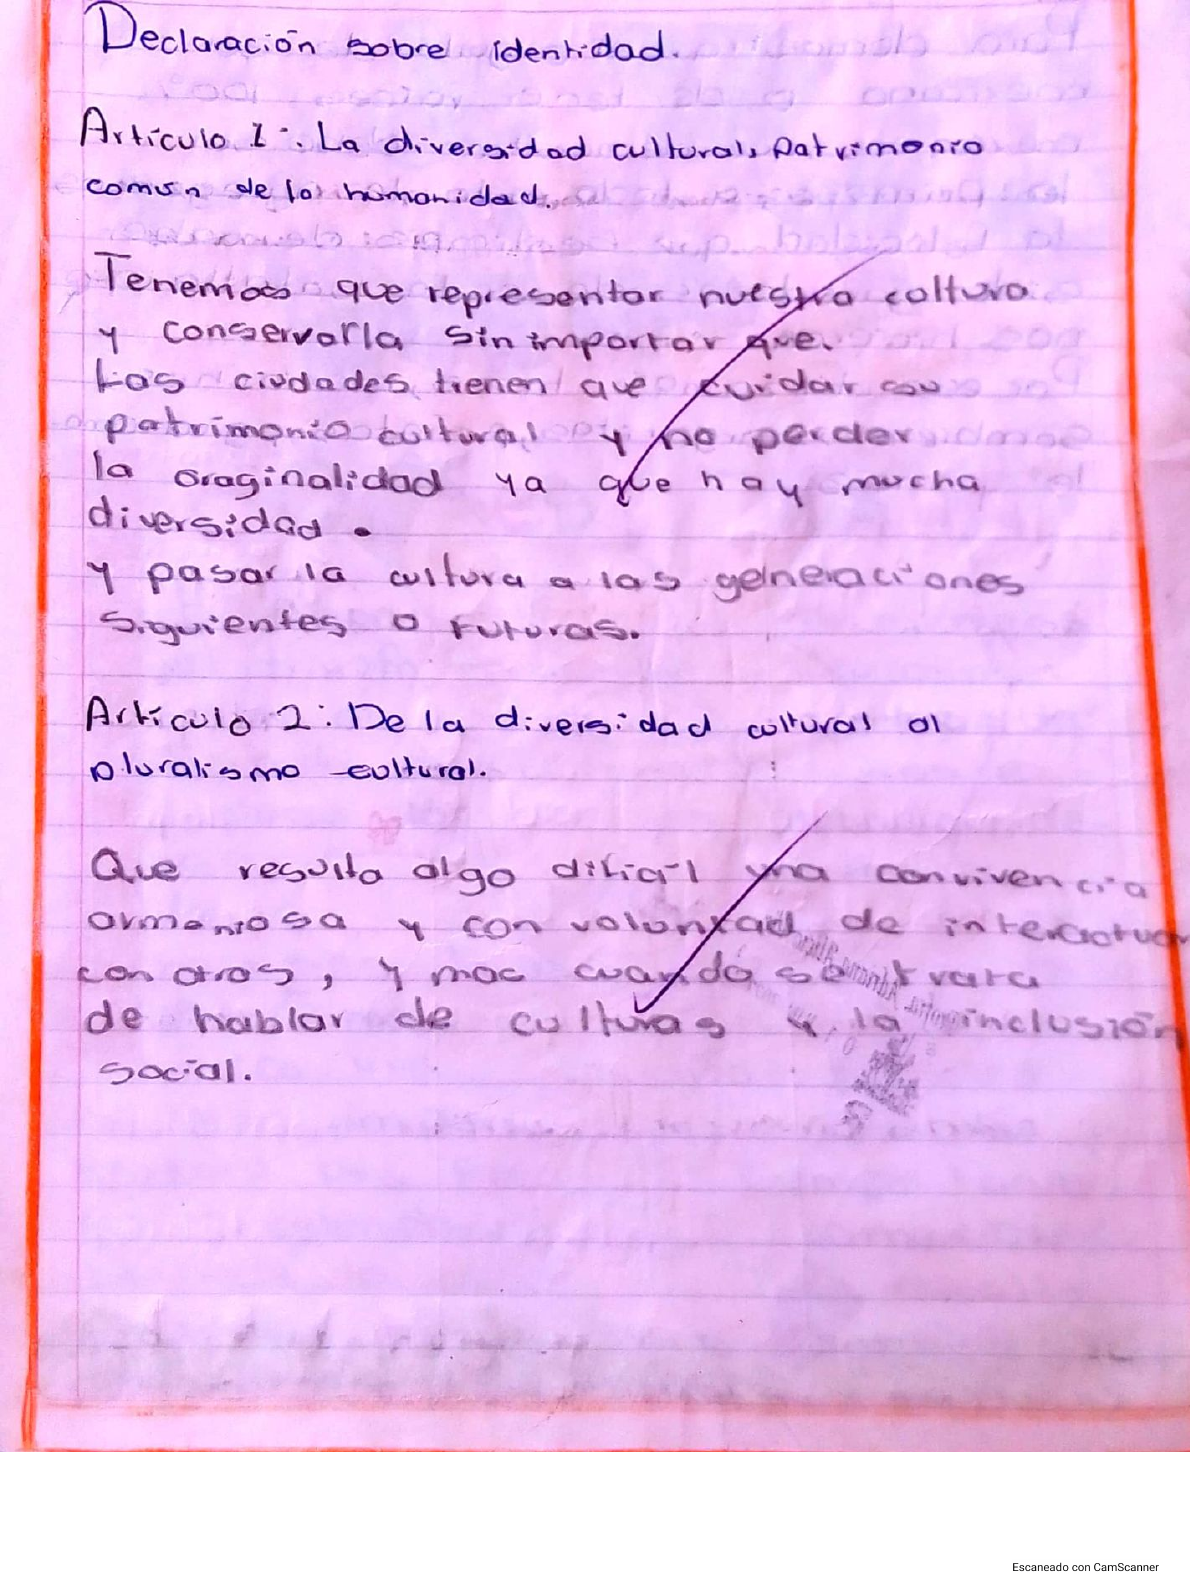 Declaración sobre identidad.
Artículo 1: La diversidad cultural, patrimonio
comun de la humanidad.
Tenemos que representar nuestra cultura
y conservarla sin importar que.
Las ciudades tienen que cuidar su
patrimonio cultural y no perder
la oraginalidad ya que hay mucha
diversidad.
y pasar la cultura a las generaciones
siguientes o futuras.
Artículo 2: De la diversidad cultural al
pluralismo cultural.
Que resulta algo dificil una convivencia
armoniosa y con voluntad de interactuar
con otros, y mas cuando se trata
de hablar de culturas y la inclusión
social.
Escaneado con CamScanner